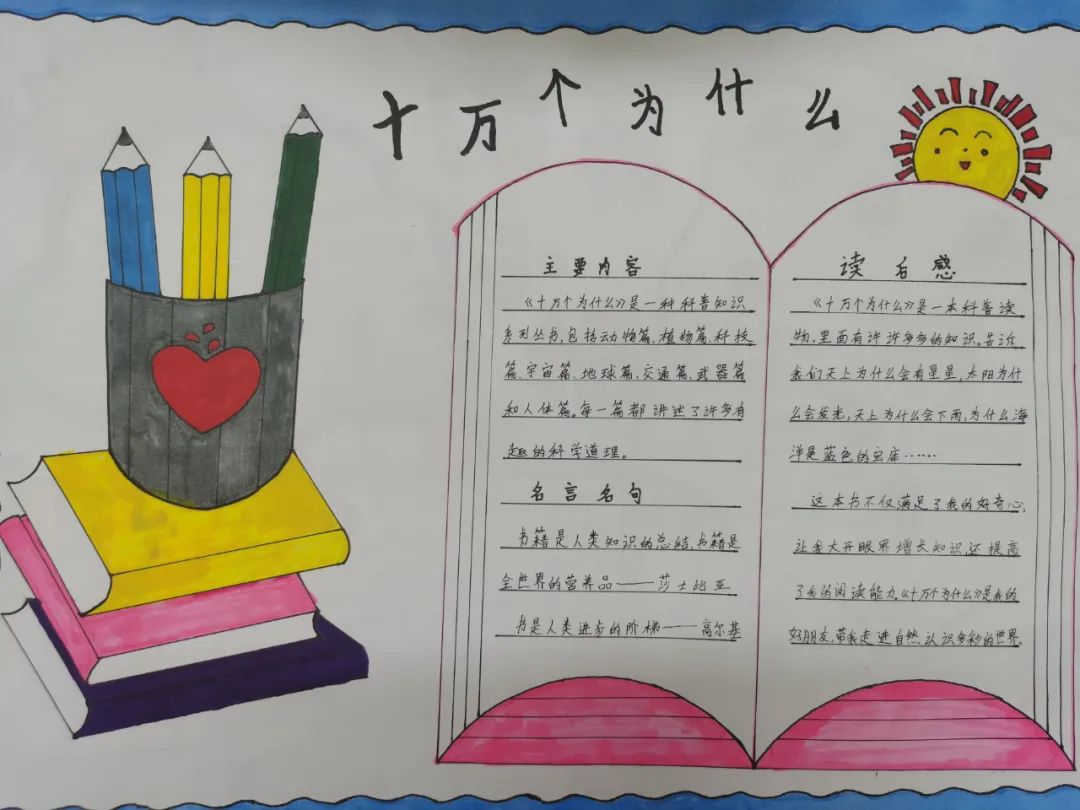 十万个为什么
主要内容
《十万个为什么》是一种科普知识
系列丛书,包括动物篇、植物篇、科技
篇、宇宙篇、地球篇、交通篇、武器篇
和人体篇。每一篇都讲述了许多有
趣的科学道理。
名言名句
书籍是人类知识的总结,书籍是
全世界的营养品——莎士比亚
书是人类进步的阶梯——高尔基
读后感
《十万个为什么》是一本科普读
物,里面有许许多多的知识。告诉
我们天上为什么会有星星,太阳为什
么会发光,天上为什么会下雨,为什么海
洋是蓝色的
这本书不仅满足了我的好奇心,
让我大开眼界增长知识,还提高
了我的阅读能力。《十万个为什么》是我的
好朋友,带我走进自然,认识多彩的世界。